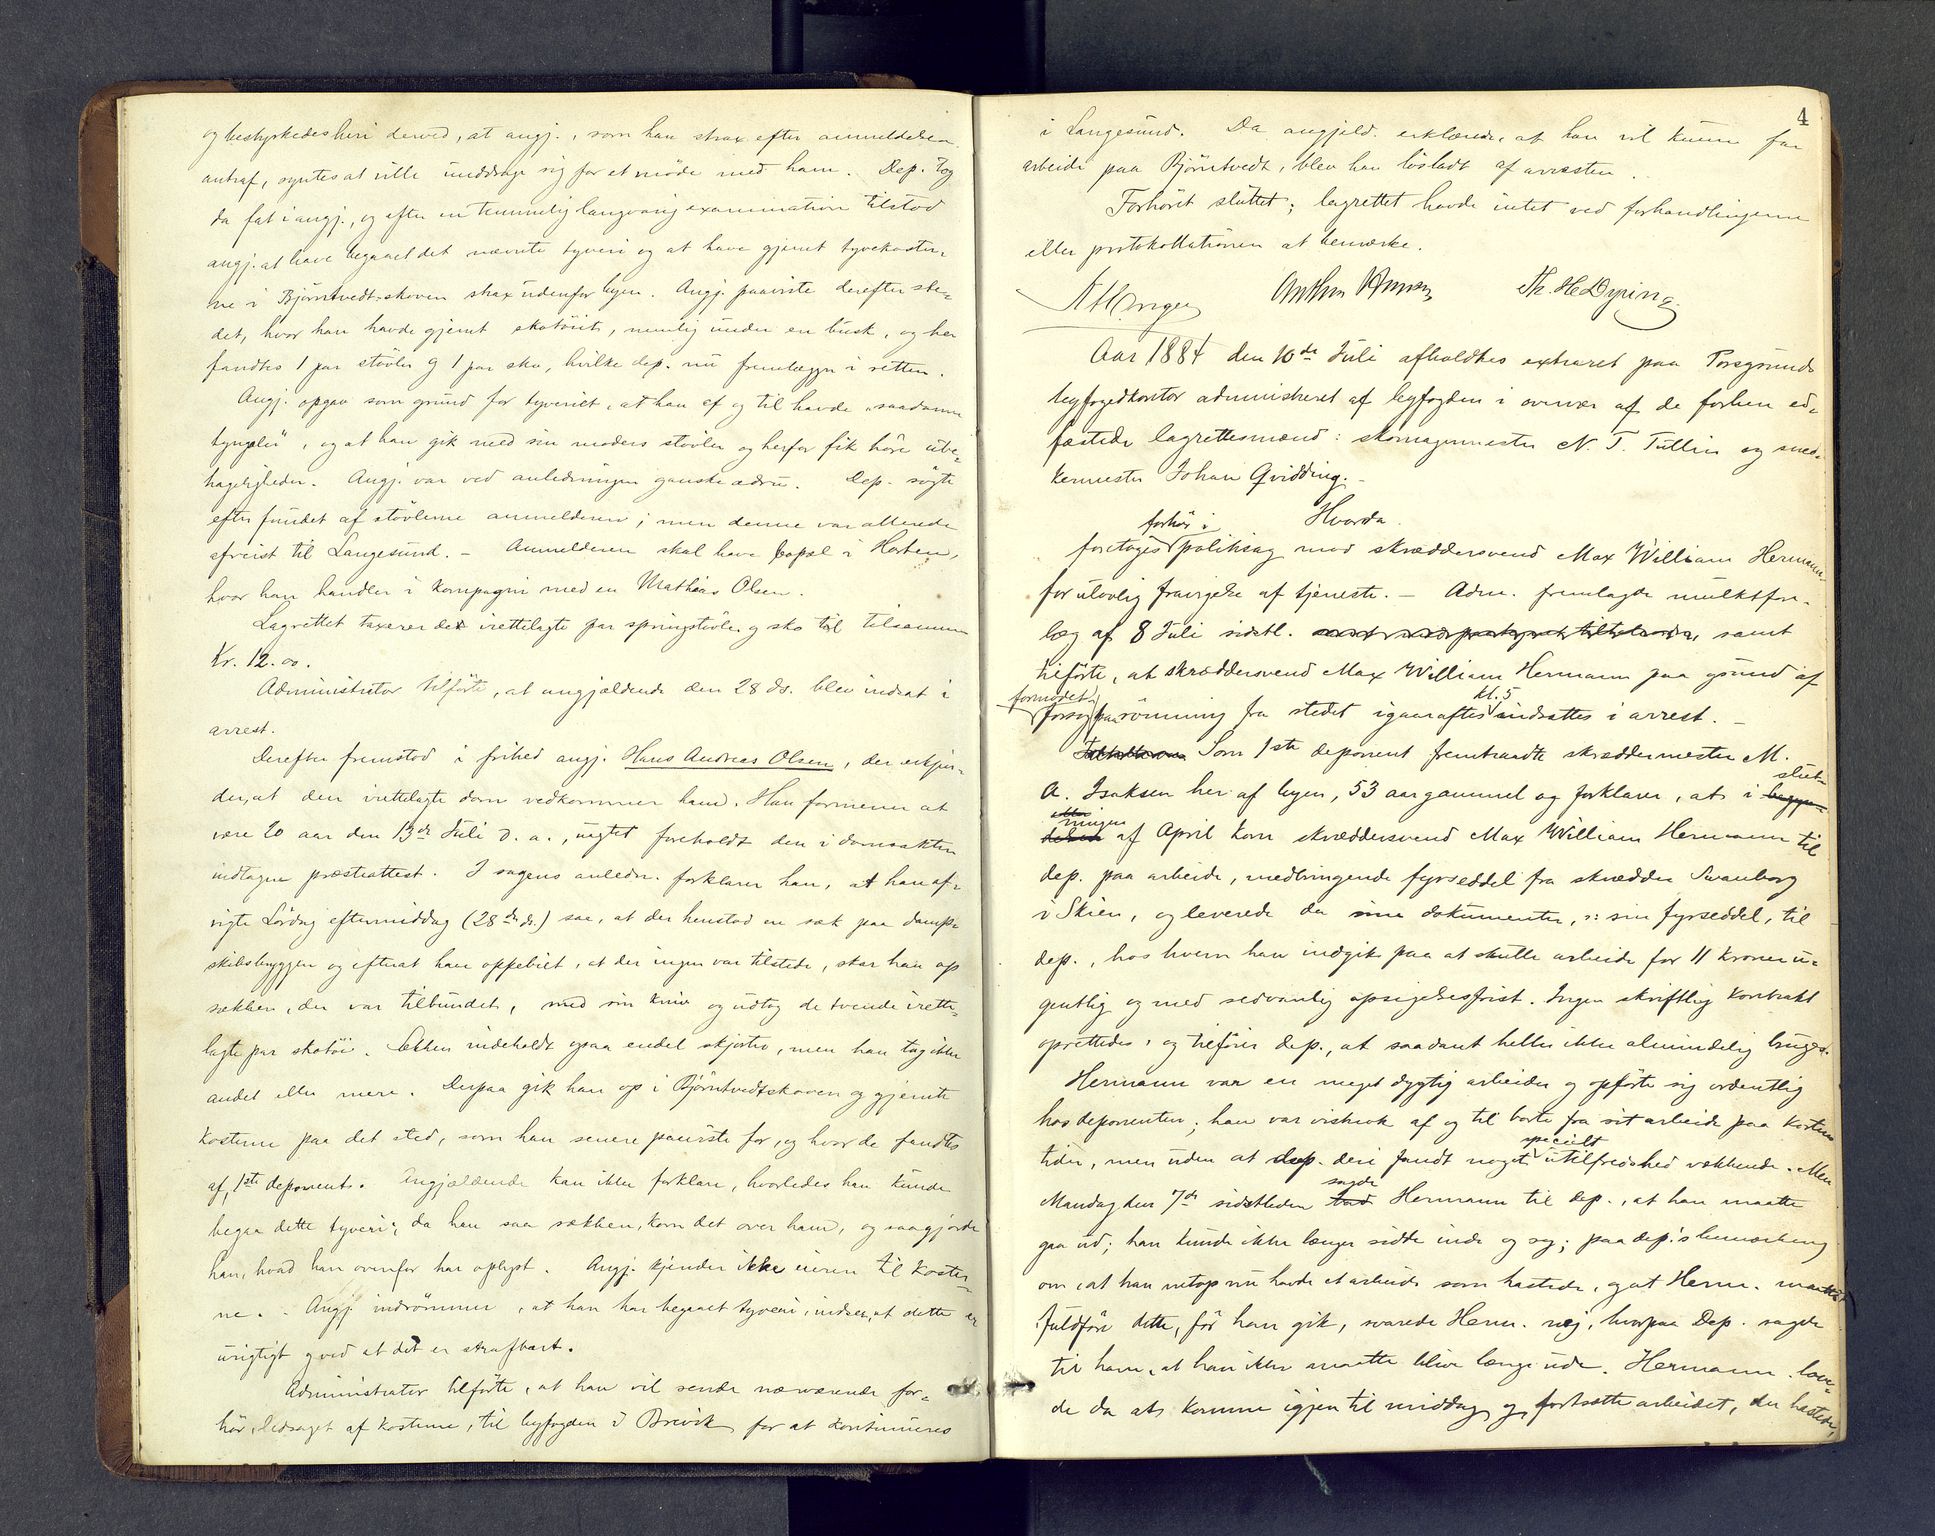 og bestyrkedes heri derved, at angj., som han strax efter anmeldelsen
antraf, syntes at ville unddrage sig for et møde med ham. Dep. tog
da fat i angj., og efter en temmelig langvarig examination tilstod
angj. at have begaaet det nævnte tyveri og at have gjemt tyvekoster-
ne i Björntvedt-skoven strax udenfor byen. Angj. paaviste derefter ste-
det, hvor han havde gjemt skotöiet, nemlig under en busk, og her
fandtes 1 par stövler og 1 par sko, hvilke dep. nu fremlægger i retten.
Angj. opgav som grund for tyveriet, at han af og til havde „saadanne
", og at han gik med sin moders stövler og herfor fik höre ube-
hageligheder. Angj. var ved anledningen ganske ædru. Dep. sögte
efter fundet af stövlerne anmelderen; men denne var allerede
afreist til Langesund. – Anmelderen skal have bopæl i Horten,
hvor han handler i kompagni med en Mathias Olsen.
Lagrettet taxerer det irettelagte par springstövler og sko til tilsammen
Kr. 12.00.
Administrator tilförte, at angjældende den 28 ds. blev indsat i
arrest.
Derefter fremstod i frihed angj. Hans Andreas Olsen, der erkjen-
der, at den irettelagte dom vedkommer ham. Han formener at
være 20 aar den 13de Juli d. a., uagtet foreholdt den i domsakten
indtagne præsteattest. I sagens anledn. forklarer han, at han af-
vigte Lördag eftermiddag (28de ds.) saa, at der henstod en sæk paa damp-
skibsbryggen og efterat have oppebiet, at der ingen var tilstede, skar han op
sækken, der var tilbundet, med sin kniv og udtog de tvende irette-
lagte par skotöi. Sækken indeholdt ogsaa endel skjorter, men han tog ikke
andet eller mere. Derpaa gik han op i Björntvedtskoven og gjemte
kosterne paa det sted, som han senere paaviste for, og hvor de fandtes
af, 1ste deponent. Angjældende kan ikke forklare, hvorledes han kunde
begaa dette tyveri; da han saa sækken, kom det over ham, og saa gjorde
han, hvad han ovenfor har oplyst. Angj. kjender ikke eieren til koster-
ne. – Angj. indrömmer, at han har begaaet tyveri, indser, at dette er
urigtigt og ved at det er strafbart.
Administrator tilförte, at han vil sende nærværende for-
hör, ledsaget af kosterne, til byfogden i Brevik for at kontinueres
4
i Langesund. Da angjæld. erklærede, at han vil kunne faa
arbeide paa Björntvedt, blev han lösladt af arresten.
Forhöret sluttet; lagrettet havde intet ved forhandlingerne
eller protokollationen at bemærke.
Th. H. Dyring
Aar 1884 den 10de Juli afholdtes extraret paa Porsgrunds
byfogedkontor administreret af byfogden i overvær af de forhen ed-
fæstede lagrettesmænd: skomagermester N. T. Tullin og sned-
kermester Johan Qvidding. –
Hvorda
forhör i
foretoges politisag mod skræddersvend Max William Hermann
for ulovlig fravigelse af tjeneste. – Adm. fremlagde mulktfore-
læg af 8 Juli sidstl. samt
tilförte, at skræddersvend Max William Hermann paa grund af
formodet kl. 5
forsög paa römning fra stedet igaaraftes indsattes i arrest. –
Som 1ste deponent fremtraadte skræddermester M.
A. Isaksen her af byen, 53 aar gammel og forklarer, at i slut-
ningen af April kom skræddersvend Max William Hermann til
dep. paa arbeide, medbringende fyrseddel fra skrædder Svanborg
i Skien, og leverede da sine dokumenter, ɔ: sin fyrseddel, til
dep., hos hvem han indgik paa at skulle arbeide for 11 Kroner u-
gentlig og med sedvanlig opsigelsesfrist. Ingen skriftlig kontrakt
oprettedes, og tilföier dep., at saadant heller ikke almindelig bruges.
Hermann var en meget dygtig arbeider og opförte sig ordentlig
hos deponenten; han var vistnok af og til borte fra sit arbeide paa kortere
specielt
tider, men uden at dep. deri fandt noget utilfredshed vækkende. Men
sagde
Mandag den 7de sidstleden bad Hermann til dep., at han maatte
gaa ud; han kunde ikke længer sidde inde og sy; paa dep.'s bemærkning
om, at han netop nu havde et arbeide som hastede, og at Herm. maatte
fuldföre dette, för han gik, svarede Herm. nej, hvorpaa Dep. sagde
til ham, at han ikke maatte blive længe ude. Hermann love-
de da at komme igjen til middag og fortsætte arbeidet, der hastede,